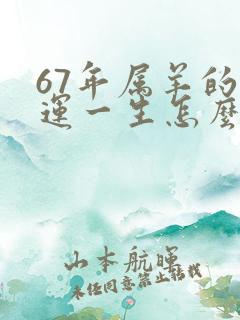 67年属羊的
運一生怎麼
山本航暉
未经同意禁止转载